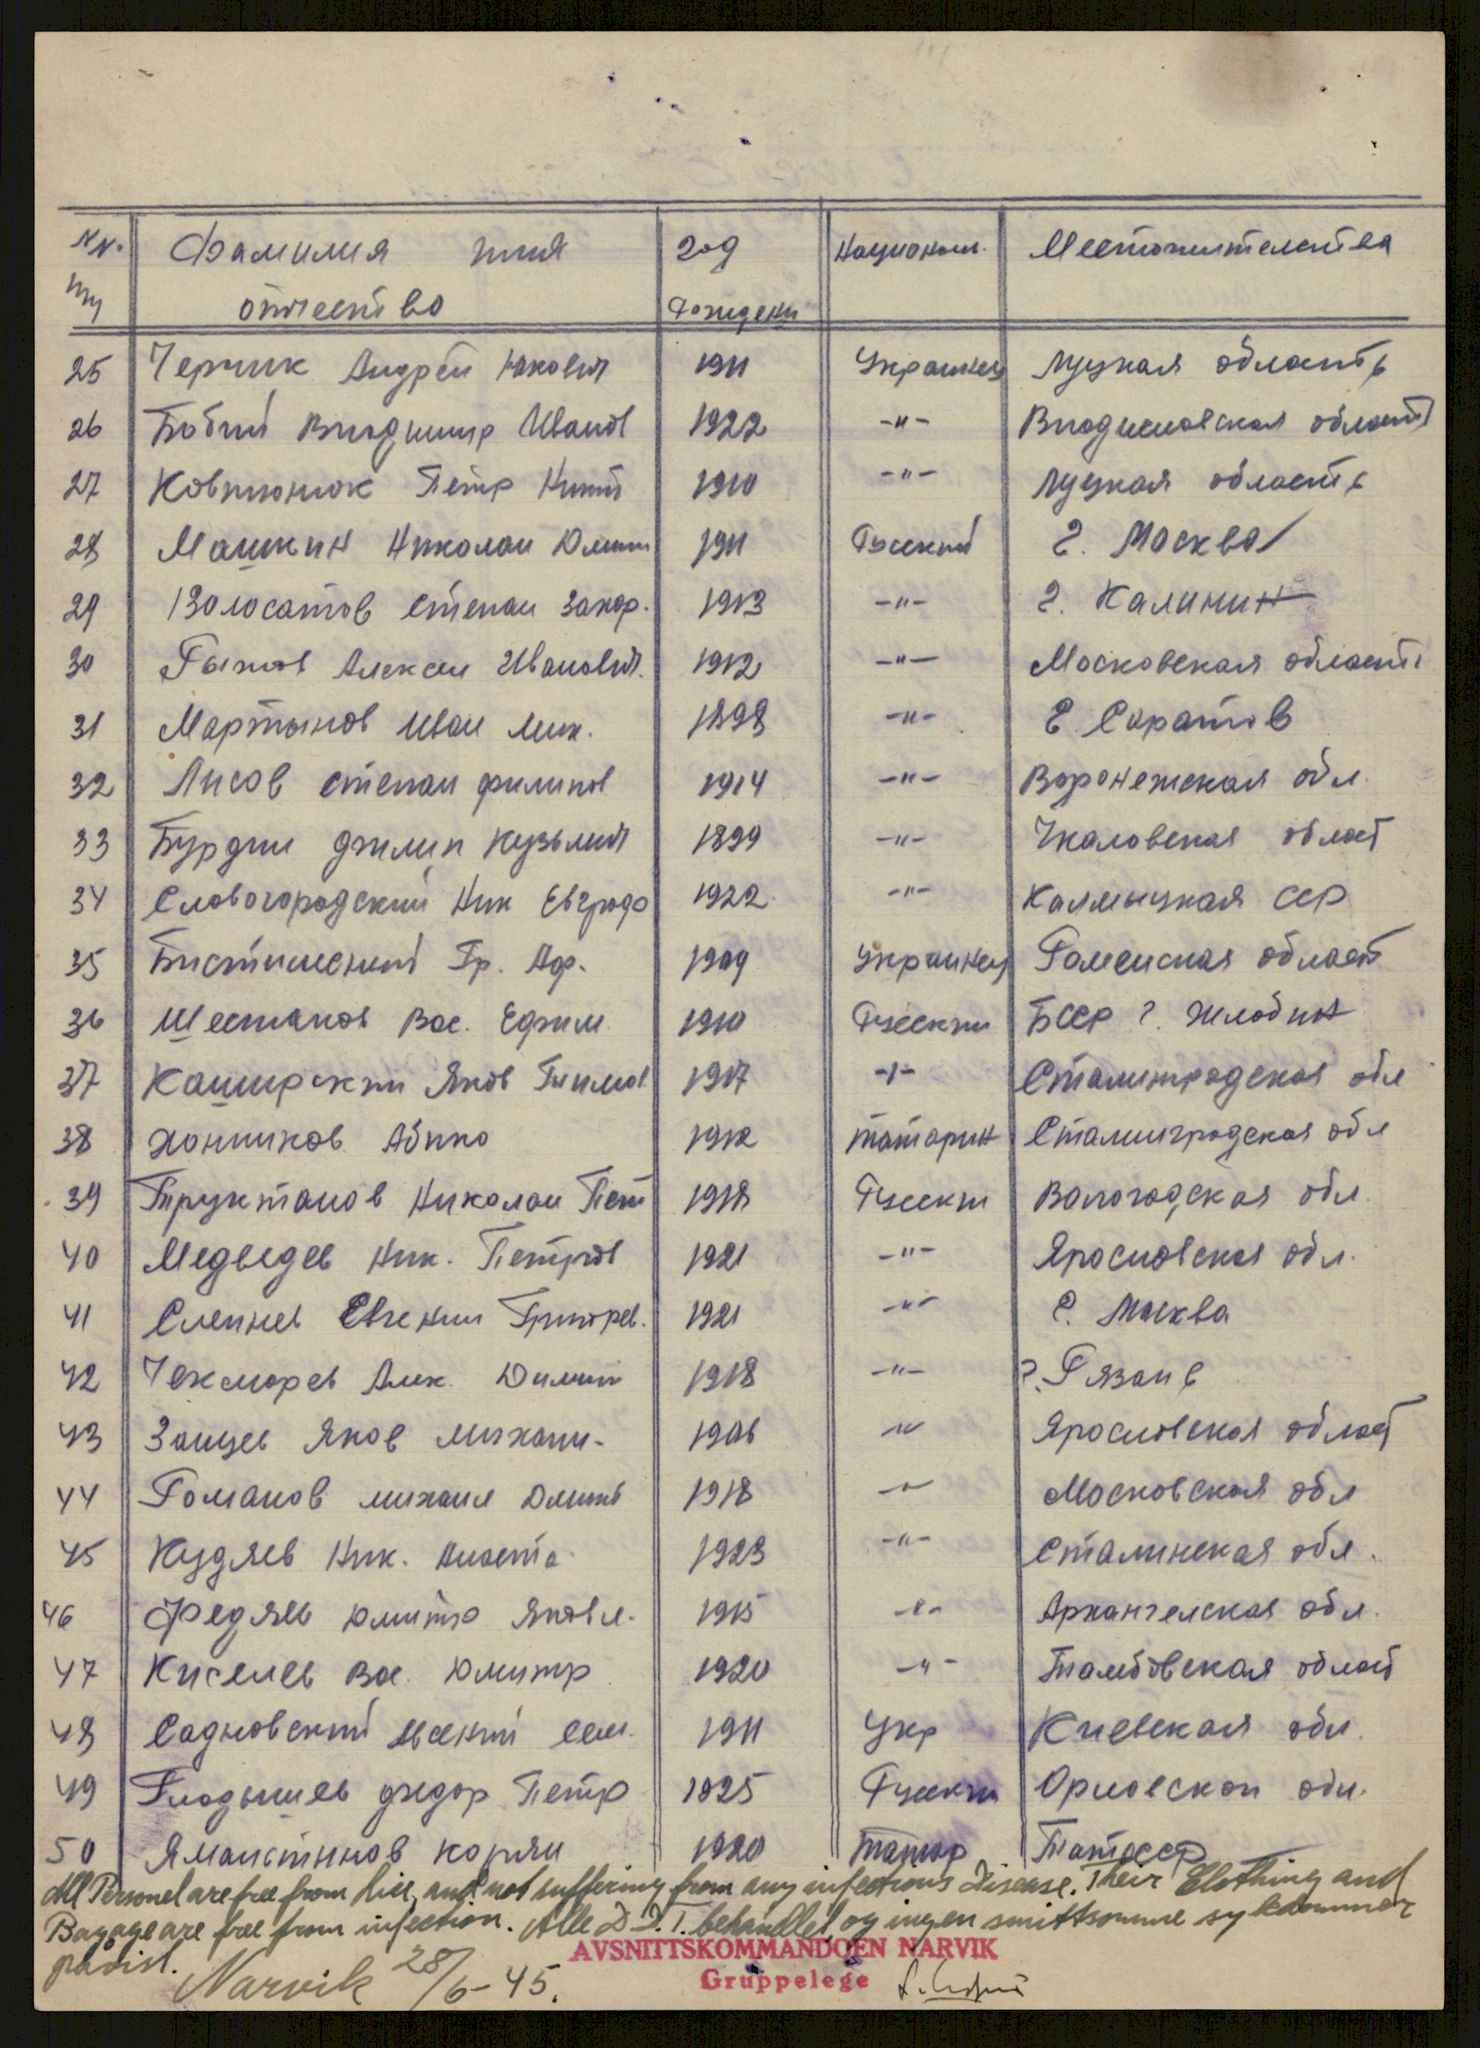 NN. Фамилия имя год Национальн. Местожительства
пп отчество рождени
25 Черчик Андрей Яковил 1911 Украинец Луцкая область
26 Бобий Владимир Иванов 1922 -"- Владиславская област
27 Ковтонюк Петр Никит 1910 -"- Луцкая область
28 Машкин Николаи Дмит 1911 Русский г. Москва
29 Волосатов Степан Захар. 1913 -"- г. Калинин
30 Рыжов Алексеи Иванович. 1912 -"- Московская область
31 Мартынов Иван Мих. 1898 -"- г Саратов
32 Лисов Степан Филипов 1914 -"- Воронежская обл.
33 Бурдин Филип Кузьмич 1899 -"- Чкаловская област
34 Словогородский Ник Евграфо 1922 -"- Калмыцкая ССР
35 Гр. Аф. 1909 Украинец Роменская област
36 Шестаков Вас. Ефим. 1910 Русскии БССР г. Жлобин
37 Каширскии Яков Тимов 1917 -"- Сталинградская обл
38 Хонинов Абико 1912 татарин Сталинградская обл
39 Труктанов Николаи Пет 1918 Русскии Вологодская обл.
40 Медведев Ник. Петров 1921 -"- Ярославская обл.
41 Слепнев Евгении Григорев. 1921 -"- г. Москва
42 Чекмарев Алек. Димит 1918 -"- г. Рязань
43 Заицев Яков Михаил- 1906 -"- Ярославская област
44 Романов Михаил Дмит 1918 -"- Московская обл
45 Кудяев Ник. 1923 -"- Сталинская обл.
46 Федяев Дмитр Яковл. 1915 -"- Архангелская обл.
47 Киселев Вас. Дмитр 1920 -"- Тамбовская област
48 Садновский Сем. 1911 Укр Киевская обл.
49 Гладышев Федор Петр 1925 Русскии Орловскои обл.
50 Ямалстинов Карям 1920 татар Татасср
All Personel are free from lice, and not suffering from any infectious Disease. Their Clothing and
Bagage are free from infection. Alle D.D.T. behandlet og ingen smittsomme sykdommer
påvist.
AVSNITTSKOMMANDOEN NARVIK
Narvik 28/6-45.
Gruppelege